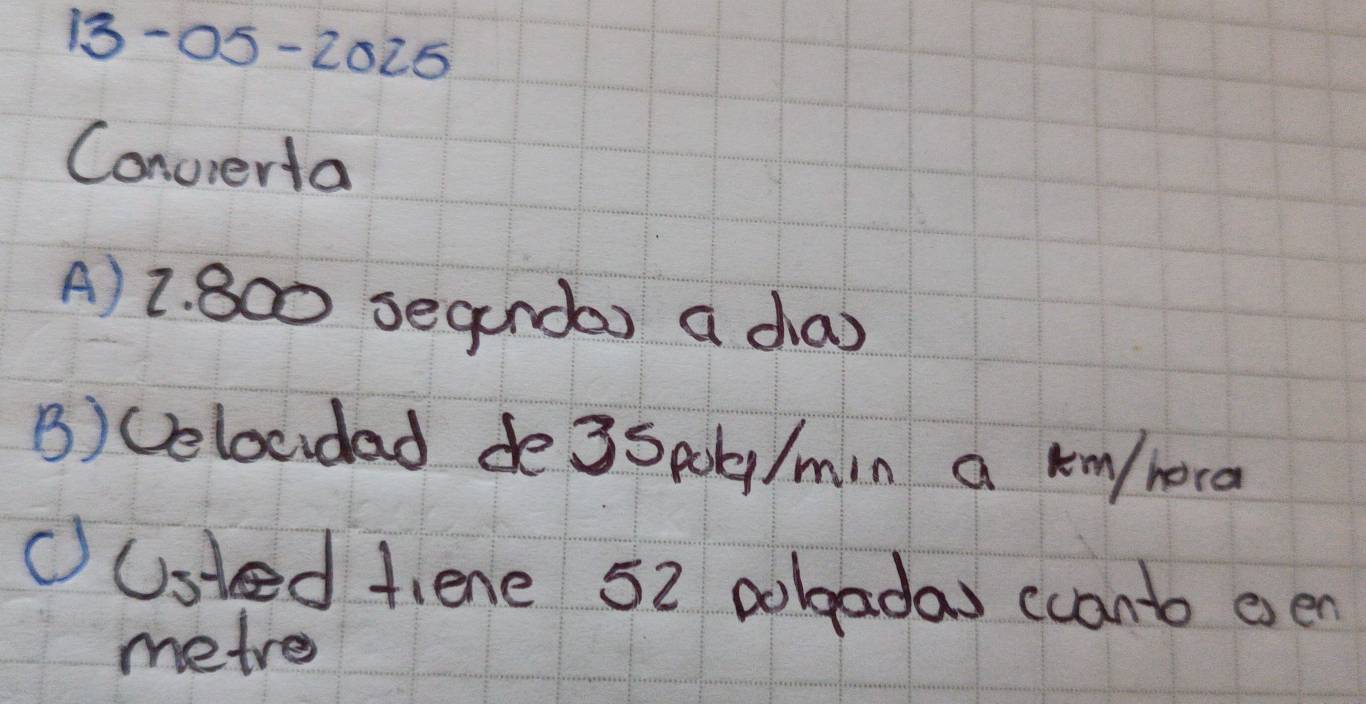 13-05-2025
Convierta
A) 2.800 segundos a dias
B) Velocidad de 35 pulg/min a km/hora
C) Usted tiene 52 pulgadas cuanto es en
metro